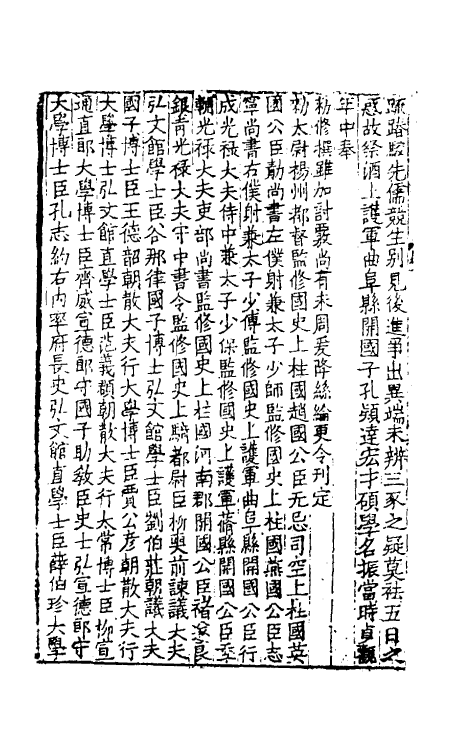 疏路駁先儒競生别見後進爭出異端未辨三豕之疑莫袪五日之
惑故祭酒上護軍曲阜縣開國子孔頴達宏才碩學名振當時貞觀
年中奉
勅修撰雖加討覈尚有未周爰降絲綸更令刊定
勅太尉楊州都督監修國史上柱國趙國公臣无忌司空上柱國英
國公臣勣尚書左僕射兼太子少師監修國史上柱國燕國公臣志
寧尚書右僕射兼太子少傅監修國史上護軍曲阜縣開國公臣行
成光禄大夫侍中兼太子少保監修國史上護軍蓚縣開國公臣季
輔光禄大夫吏部尚書監修國史上柱國河南郡開國公臣褚遂良
銀青光禄大夫守中書令監修國史上騎都尉臣柳奭前諫議大夫
弘文館學士臣谷那律國子博士弘文館學士臣劉伯莊朝議大夫
國子博士臣王德韶朝散大夫行大學博士臣賈公彦朝散大夫行
大學博士弘文館直學士臣范義頵朝散大夫行太常博士臣柳宣
通直郎大學博士臣齊威宣德郎守國子助敎臣史士弘宣德郎守
大學博士臣孔志約右内率府長史弘文館直學士臣薛伯珍大學